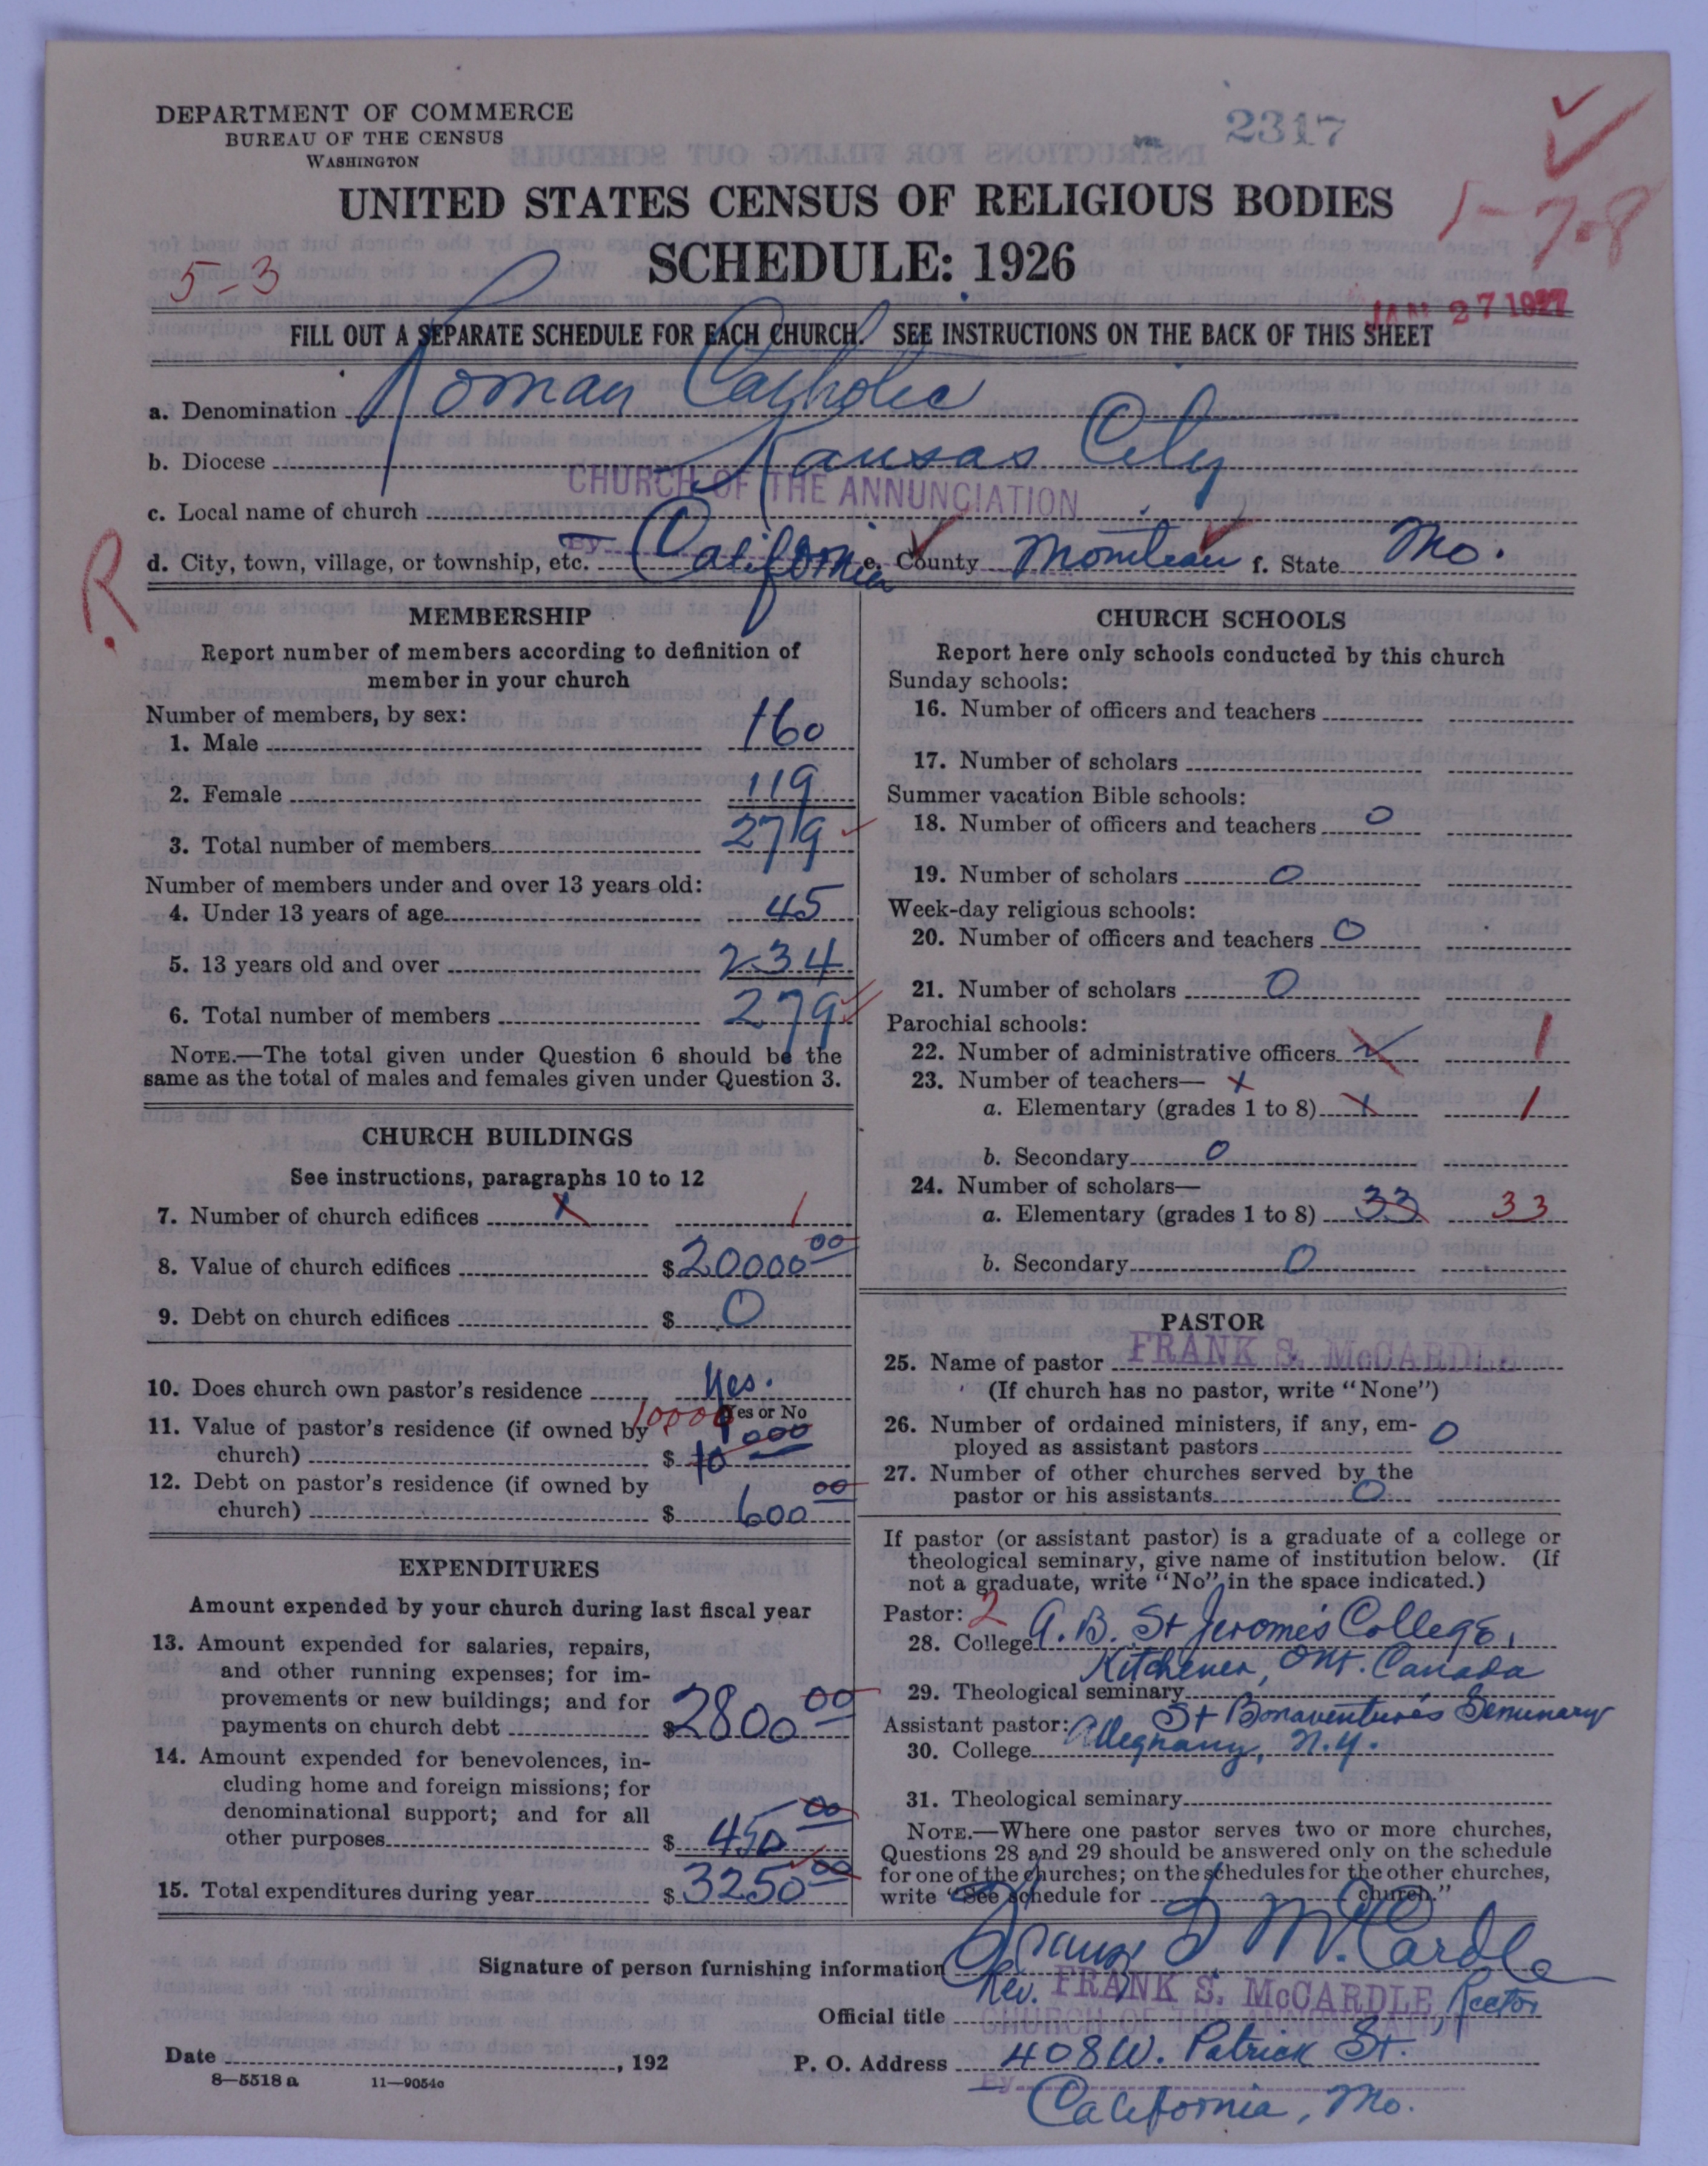 DEPARTMENT OF COMMERCE
BUREAU OF THE CENSUS
WASHINGTON
2317
UNITED STATES CENSUS OF RELIGIOUS BODIES
1-7-8
SCHEDULE: 1926
5-3
JAN 27 1927
FILL OUT A SEPARATE SCHEDULE FOR EACH CHURCH. SEE INSTRUCTIONS ON THE BACK OF THIS SHEET
a. Denomination Roman Catholic
b. Diocese Kansas City
c. Local name of church CHURCH OF THE ANNUNCIATION
d. City, town, village, or township, etc. By California e. County Moniteau f. State Mo.
R
MEMBERSHIP
Report number of members according to definition of
member in your church
Number of members, by sex:
1. Male 160
2. Female 119
3. Total number of members 279
Number of members under and over 13 years old:
4. Under 13 years of age 45
5. 13 years old and over 234
6. Total number of members 279
NOTE.—The total given under Question 6 should be the
same as the total of males and females given under Question 3.
CHURCH BUILDINGS
See instructions, paragraphs 10 to 12
7. Number of church edifices 1
8. Value of church edifices $20000 00
9. Debt on church edifices $ 0
10. Does church own pastor's residence Yes.
Yes or No
11. Value of pastor's residence (if owned by 10000
church) $ 10 000
12. Debt on pastor's residence (if owned by
church) $ 600 00
EXPENDITURES
Amount expended by your church during last fiscal year
13. Amount expended for salaries, repairs,
and other running expenses; for im-
provements or new buildings; and for
payments on church debt $2800 00
14. Amount expended for benevolences, in-
cluding home and foreign missions; for
denominational support; and for all
other purposes $ 450 00
15. Total expenditures during year $ 3250 00
CHURCH SCHOOLS
Report here only schools conducted by this church
Sunday schools:
16. Number of officers and teachers
17. Number of scholars
Summer vacation Bible schools:
18. Number of officers and teachers 0
19. Number of scholars 0
Week-day religious schools:
20. Number of officers and teachers 0
21. Number of scholars 0
Parochial schools:
22. Number of administrative officers 1
23. Number of teachers— x
a. Elementary (grades 1 to 8) 1
b. Secondary 0
24. Number of scholars—
a. Elementary (grades 1 to 8) 33 33
b. Secondary 0
PASTOR
25. Name of pastor FRANK S. McCARDLE
(If church has no pastor, write "None")
26. Number of ordained ministers, if any, em-
ployed as assistant pastors 0
27. Number of other churches served by the
pastor or his assistants 0
If pastor (or assistant pastor) is a graduate of a college or
theological seminary, give name of institution below. (If
not a graduate, write "No" in the space indicated.)
Pastor: 2
28. College A.B. St Jerome's College,
Kitchener, Ont. Canada
29. Theological seminary
St Bonaventure's Seminary
Assistant pastor: Alleghany, N.Y.
30. College
31. Theological seminary
NOTE.—Where one pastor serves two or more churches,
Questions 28 and 29 should be answered only on the schedule
for one of the churches; on the schedules for the other churches,
write "See schedule for church."
Signature of person furnishing information Frank S McCardle
Rev. FRANK S. McCARDLE, Rector
Official title CHURCH OF THE ANNUNCIATION
Date , 192
P. O. Address 408 W. Patrick St.
By
California, Mo.
8—5518 a 11—9054c